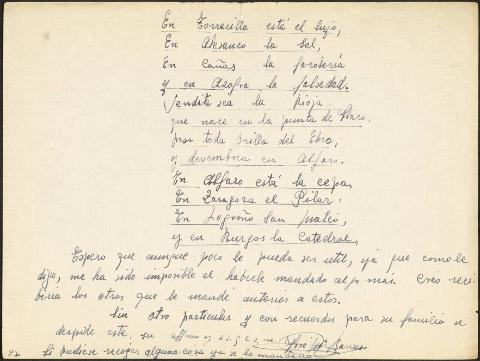 En Torrecilla está el lujo,
En Alesanco la Sal,
En Cañas la faroleria
y en Azofra la falsedad.
Bendita sea la Rioja
que nace en la punta de Haro,
pasa toda orilla del Ebro,
y desemboca en Alfaro.
En Alfaro está la cepa,
En Zaragoza el Pilar,
En Logroño San Mateo,
y en Burgos la Catedral,
Espero que aunque poco le pueda ser util, ya que como le
digo, me ha sido imposible el haberle mandado algo más. Creo reci-
biria los otros que le mandé anteriores a estos.
Sin otro particular y con recuerdos para su familia se
despide este, su affmo s.s.q.e.s.m. José Mª
Si pudiese recoger alguna cosa ya se lo mandaría